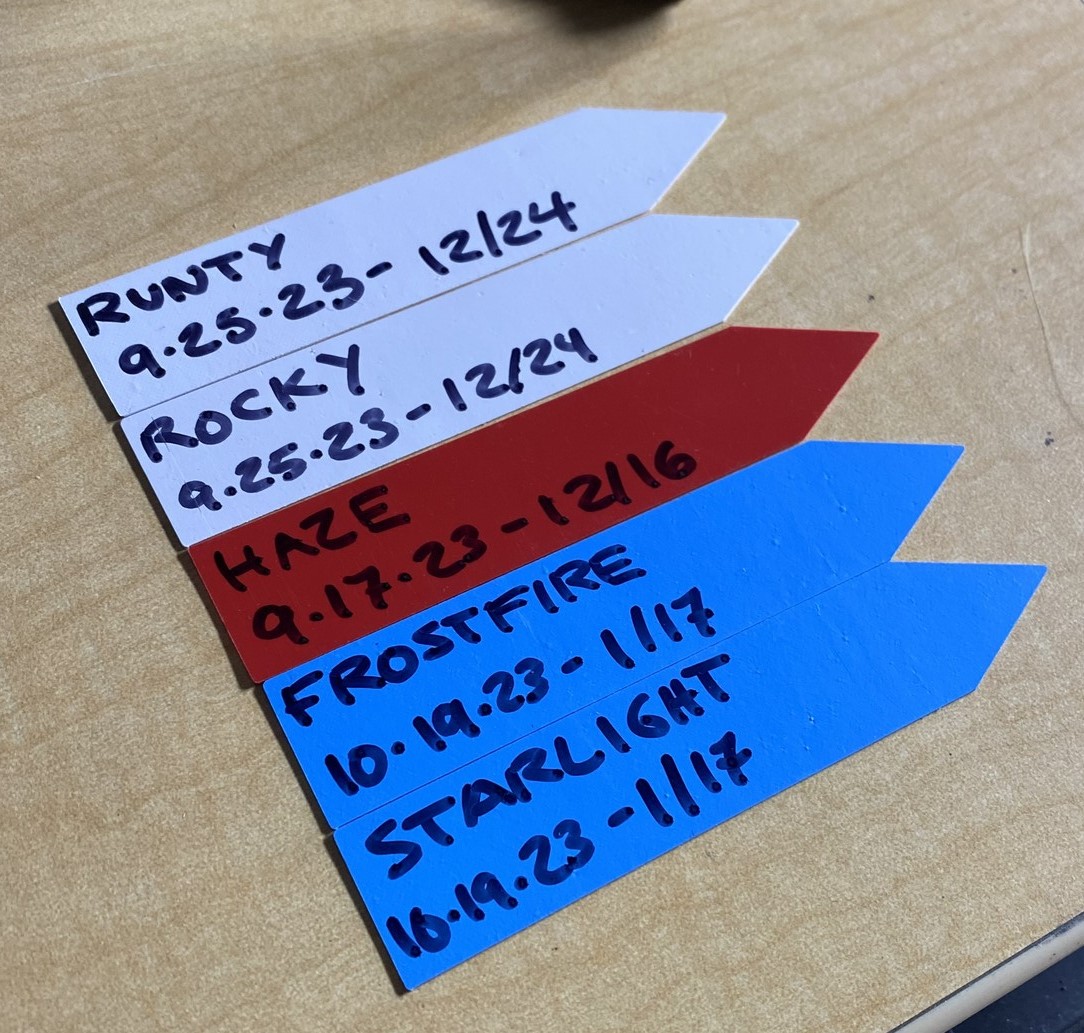 RUNTY
9.25.23- 12/24
ROCKY
9.25.23-12/24
HAZE
9.17.23-12/16
FROSTFIRE
10.19.23-1/17
STARLIGHT
10.19.23-1/17